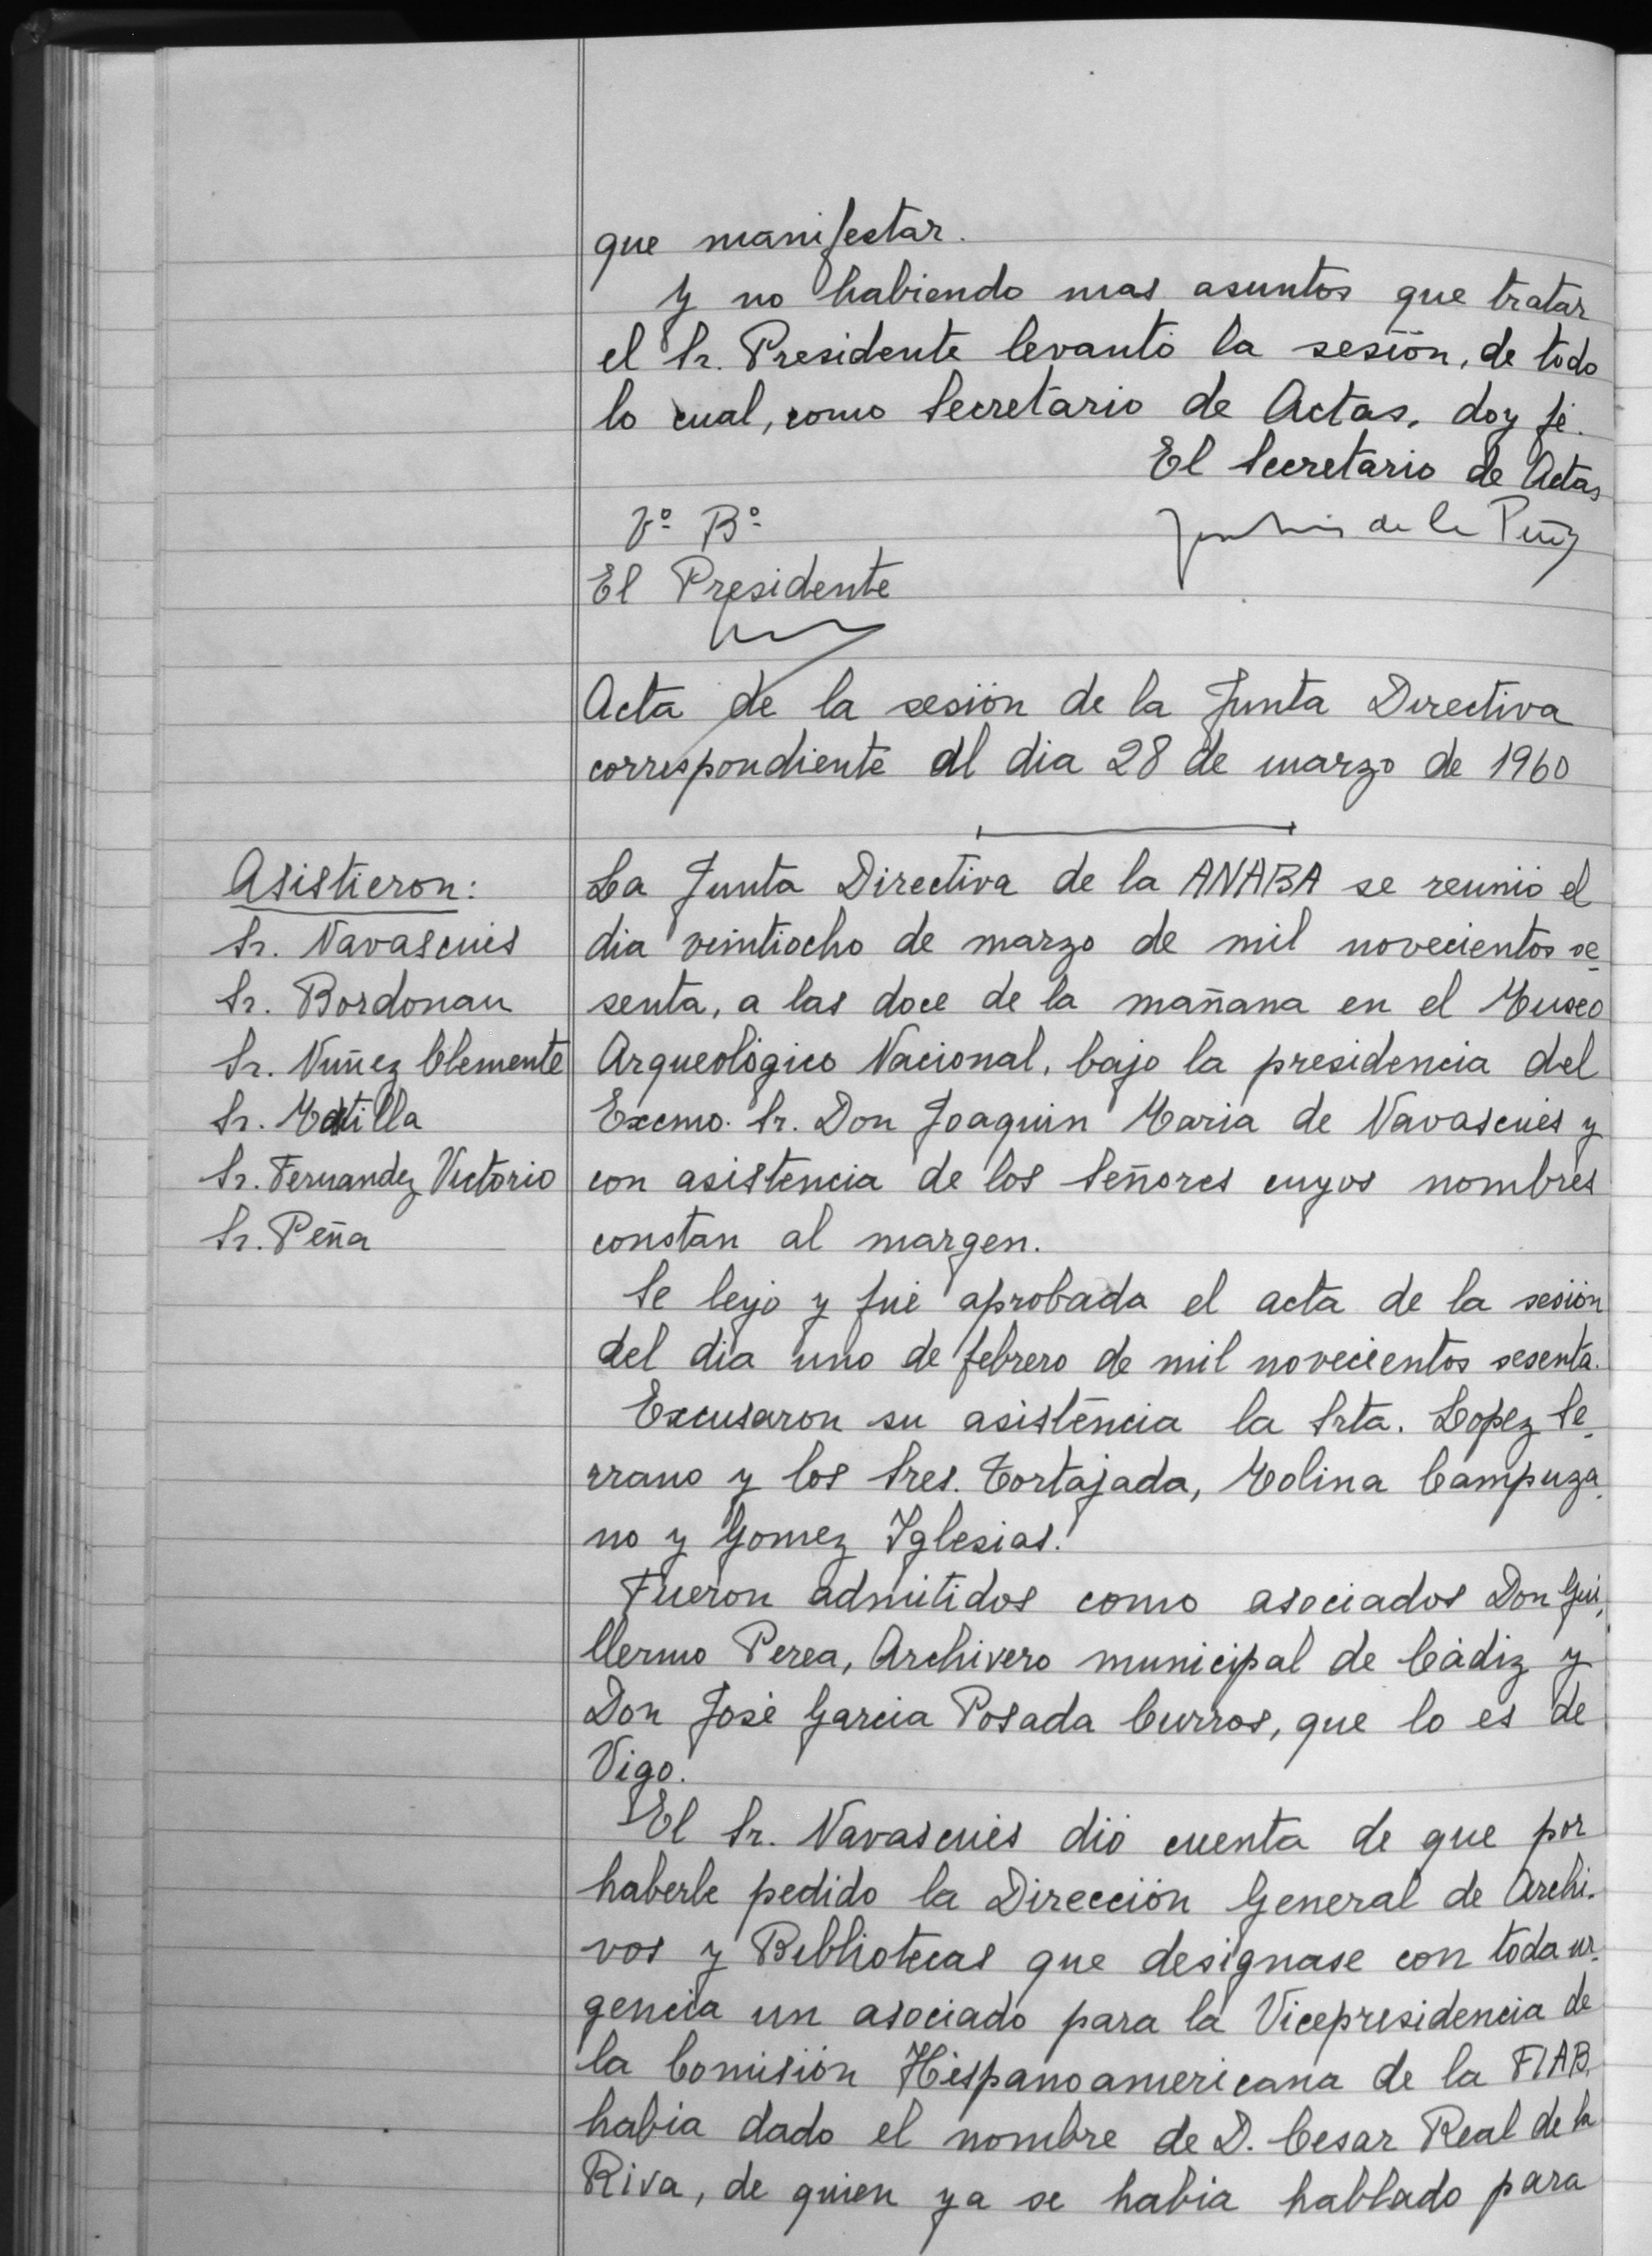 que manifestar.
Y no habiendo mas asuntos que tratar
el Sr. Presidente levantó la sesión, de todo
lo cual, como Secretario de Actas, doy fé.
El Secretario de Actas
Vº Bº
de la Peña
El Presidente
Acta de la sesión de la Junta Directiva
correspondiente al dia 28 de marzo de 1960
Asistieron:
Sr. Navascués
Sr. Bordonau
Sr. Nuñez Clemente
Sr. Matilla
Sr. Fernandez Victorio
Sr. Peña
La Junta Directiva de la ANABA se reunió el
dia veintiocho de marzo de mil novecientos se-
senta, a las doce de la mañana en el Museo
Arqueológico Nacional, bajo la presidencia del
Excmo. Sr. Don Joaquin Maria de Navascués y
con asistencia de los Señores cuyos nombres
constan al margen.
Se leyó y fué aprobada el acta de la sesión
del dia uno de febrero de mil novecientos sesenta.
Excusaron su asistencia la Srta. Lopez Se-
rrano y los Sres. Tortajada, Molina Campuza-
no y Gomez Iglesias.
Fueron admitidos como asociados Don Gui-
llermo Perea, Archivero municipal de Cádiz y
Don José Garcia Posada Curros, que lo es de
Vigo.
El Sr. Navascués dió cuenta de que por
haberle pedido la Dirección General de Archi-
vos y Bibliotecas que designase con toda ur-
gencia un asociado para la Vicepresidencia de
la Comisión Hispanoamericana de la FIAB,
habia dado el nombre de D. Cesar Real de la
Riva, de quien ya se habia hablado para